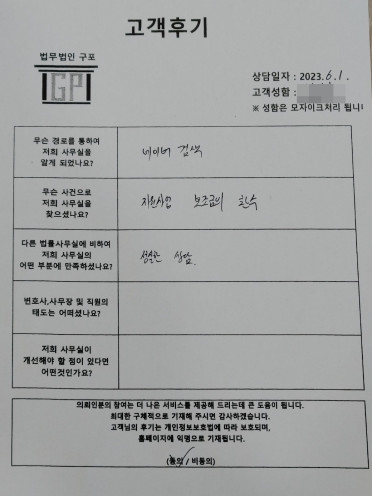 고객후기
법무법인 구포
GP
상담일자 : 2023. 6. 1.
고객성함 :
※ 성함은 모자이크처리 됩니
무슨 경로를 통하여
저희 사무실을
알게 되었나요?
네이버 검색
무슨 사건으로
저희 사무실을
찾으셨나요?
지원사업 보조금의 환수
다른 법률사무실에 비하여
저희 사무실의
어떤 부분에 만족하셨나요?
성실한 상담.
변호사,사무장 및 직원의
태도는 어떠셨나요?
저희 사무실이
개선해야 할 점이 있다면
어떤것인가요?
의뢰인분의 참여는 더 나은 서비스를 제공해 드리는데 큰 도움이 됩니다.
최대한 구체적으로 기재해 주시면 감사하겠습니다.
고객님의 후기는 개인정보보호법에 따라 보호되며,
홈페이지에 익명으로 기재됩니다.
(동의 / 비동의)